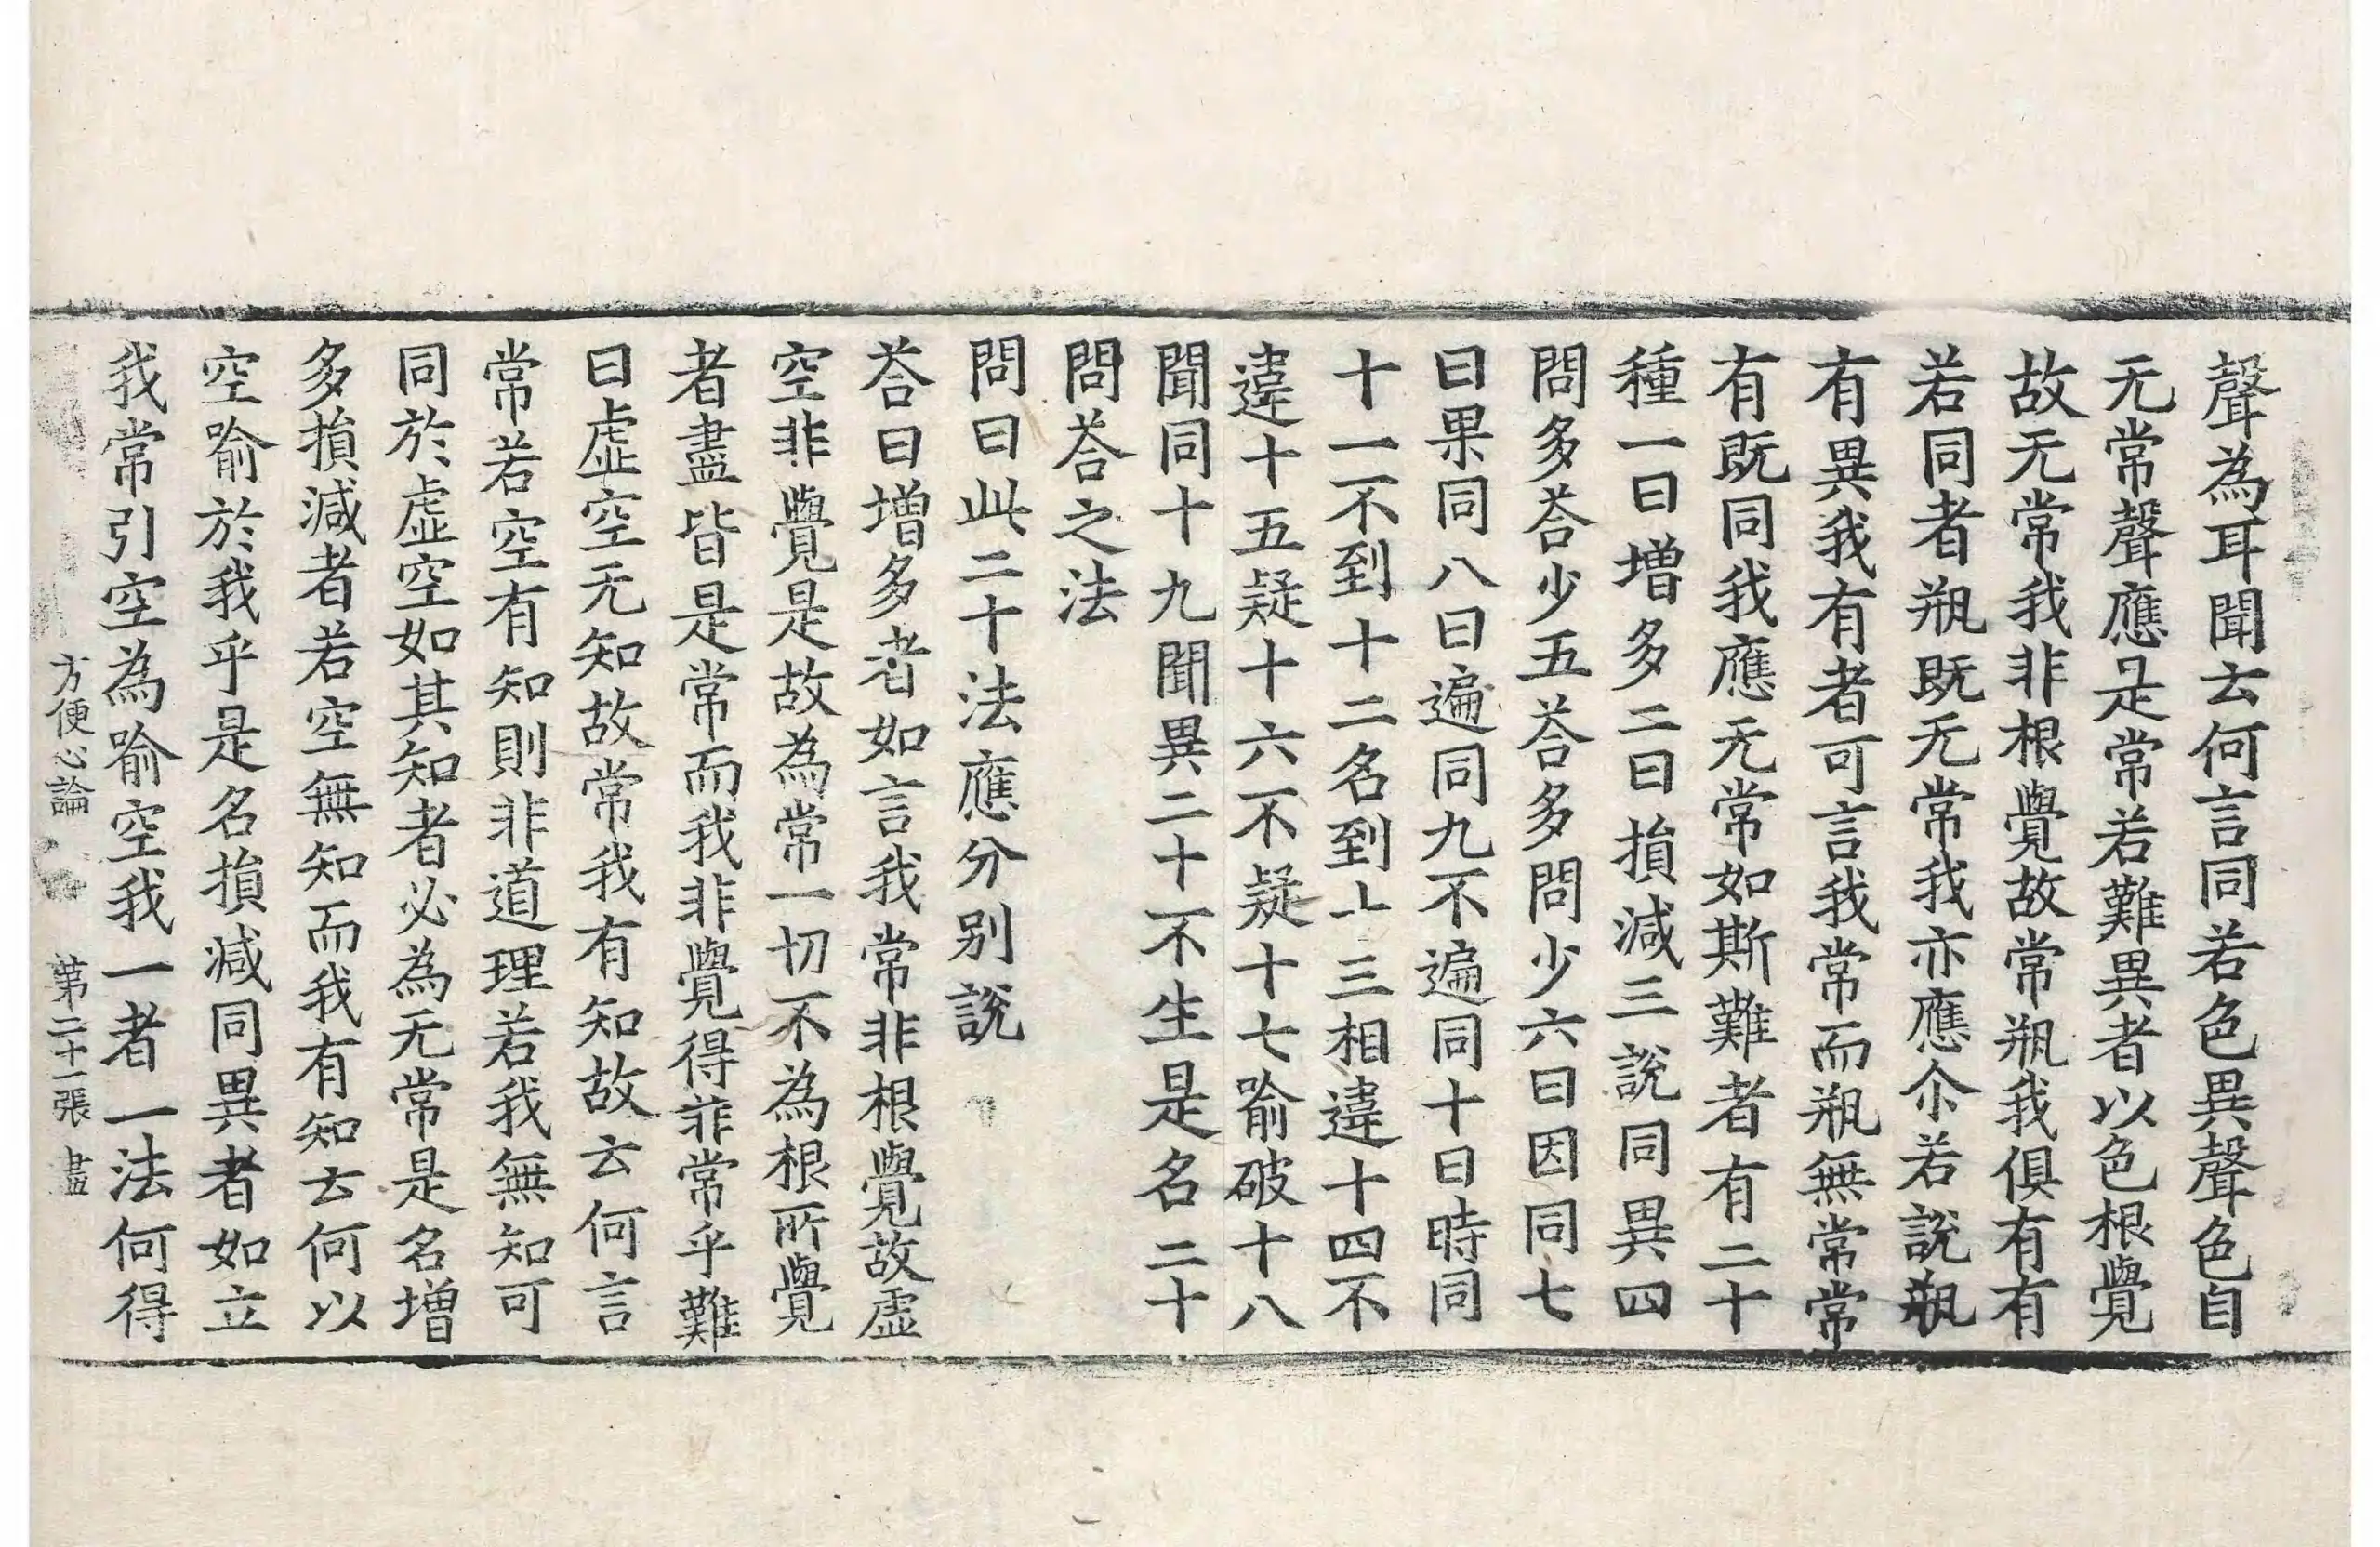 聲為耳聞云何言同若色異聲色自
无常聲應是常若難異者以色根覺
故无常我非根覺故常瓶我俱有有
若同者瓶既无常我亦應尒若說瓶
有異我有者可言我常而瓶無常常
有既同我應无常如斯難者有二十
種一曰增多二曰損減三說同異四
問多荅少五荅多問少六曰因同七
曰果同八曰遍同九不遍同十曰時同
十一不到十二名到十三相違十四不
違十五疑十六不疑十七喻破十八
聞同十九聞異二十不生是名二十
問荅之法
問曰此二十法應分別說
荅曰增多者如言我常非根覺故虛
空非覺是故為常一切不為根所覺
者盡皆是常而我非覺得非常乎難
曰虛空无知故常我有知故云何言
常若空有知則非道理若我無知可
同於虛空如其知者必為无常是名增
多損減者若空無知而我有知云何以
空喻於我乎是名損減同異者如立
我常引空為喻空我一者一法何得
方便心論 第二十一張 盡